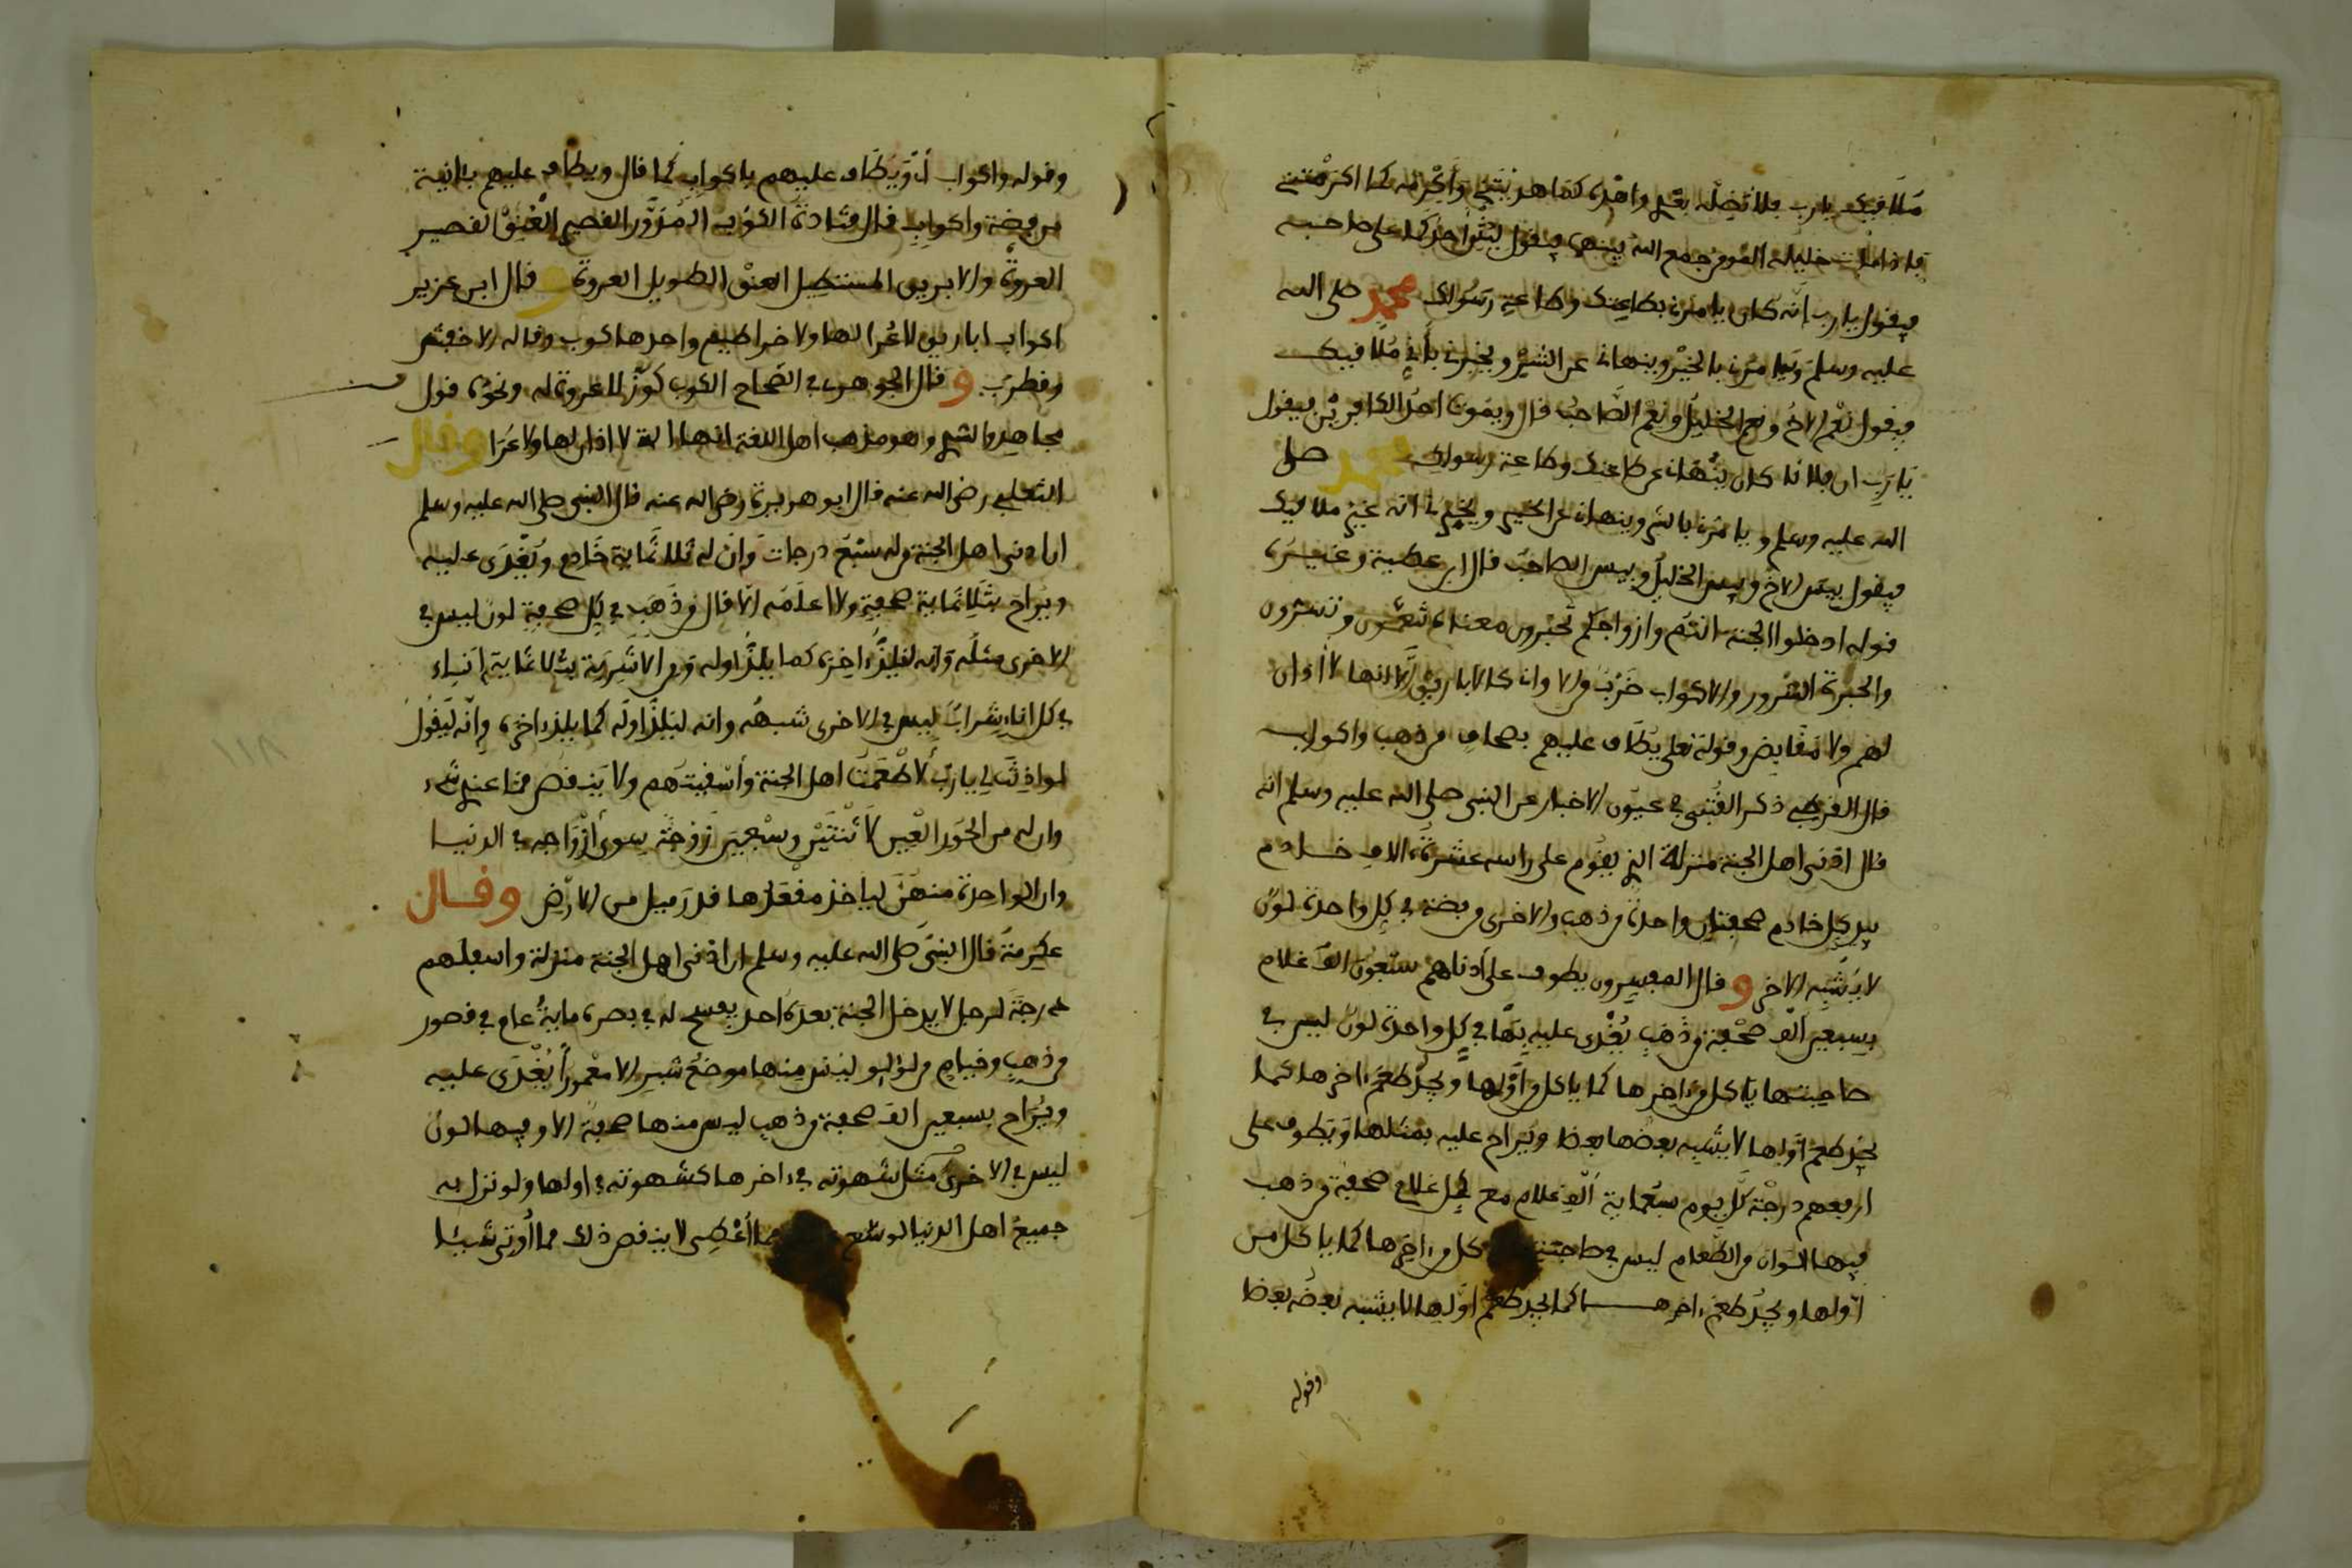 ملاقيك يارب فلا تضله بعدي واهده كما هديتني وأكرمه كما اكرمتني
فاذا مات خليله المومن جمع الله بينهما فيقول ليثن احدكما على صاحبه
فيقول يارب انه كان يامرني بطاعتك وطاعة رسولك محمد صلى الله
عليه وسلم ويامرني بالخير وينهاني عن الشر ويخبرني بأني ملاقيك
فيقول نعم الاخ ونعم الخليل ونعم الصاحب قال ويموت احد الكافرين فيقول
يارب ان فلانا كان ينهاني عن طاعتك وطاعة رسولك محمد صلى
الله عليه وسلم ويامرني بالشر وينهاني عن الخير ويخبرني انه غير ملاقيك
فيقول بيس الاخ وبيس الخليل وبيس الصاحب قال ابن عطية وغيره
قوله ادخلوا الجنة انتم وازواجكم تحبرون معناه تنعمون وتسرون
والحبرة السرور والاكواب ضرب من الاواني كالاباريق الا انها لا اذان
لهم ولا مقابض وقوله تعلى يطاف عليهم بصحاف من ذهب واكواب
قال القرطبي ذكر القتبي في عيون الاخبار عن النبي صلى الله عليه وسلم انه
قال ادنى اهل الجنة منزلة الذي يقوم على راسه عشرة ءالاف خادم
بيد كل خادم صحفتان واحدة من ذهب والاخرى من فضة في كل واحدة لون
لا يشبه الاخر وقال المفسرون يطوف على أدناهم سبعون الف غلام
بسبعين الف صحفة من ذهب يغدى عليه بها في كل واحدة لون ليس في
صاحبتها ياكل من ءاخرها كما ياكل من أولها ويجد طعم ءاخرها كما
يجد طعم اولها لا يشبه بعضها بعضا ويراح عليه بمثلها ويطوف على
ارفعهم درجة كل يوم سبعماية الف غلام مع كل غلام صحفة من ذهب
فيها الوان من الطعام ليس في صاحبتها ياكل من ءاخرها كما ياكل من
اولها ويجد طعم ءاخرها كما يجد طعم اولها لا يشبه بعضه بعضا
وقوله
وقوله واكواب أي ويطاف عليهم باكواب كما قال ويطاف عليهم بئانية
من فضة واكواب قال قتادة الكوب المدور القصير العنق القصير
العروة والابريق المستطيل العنق الطويل العروة وقال ابن عزيز
اكواب اباريق لا عرا لها ولا خراطيم واحدها كوب وقاله الاخفش
وقطرب وقال الجوهري في الصحاح الكوب كوز لا عروة له ونحوه قول
مجاهد والسدي وهو مذهب اهل اللغة انها انية لا اذان لها ولا عرا وقال
الثعلبي رضي الله عنه قال ابو هريرة رضي الله عنه قال النبي صلى الله عليه وسلم
ان ادنى اهل الجنة من له سبع درجات وان له ثلاثماية خادم ويغدى عليه
ويراح بثلاثماية صحفة ولا اعلمه الا قال من ذهب في كل صحفة لون ليس في
الاخرى مثله وانه ليلذ ءاخره كما يلذ اوله ومن الاشربة ثلاثماية اناء
في كل اناء شراب ليس في الاخرى شبهه وانه ليلذ اوله كما يلذ ءاخره وانه ليقول
لو اذنت لي يارب لأطعمت اهل الجنة وأسقيتهم ولا ينقص مما عندي شيء
وان له من الحور العين لاثنتين وسبعين زوجة سوى أزواجه في الدنيا
وان الواحدة منهن لياخذ مقعدها قدر ميل من الارض وقال
عكرمة قال النبي صلى الله عليه وسلم ان ادنى اهل الجنة منزلة واسفلهم
درجة لرجل لا يدخل الجنة بعده احد يفسح له في بصره ماية عام في قصور
من ذهب وخيام من لؤلو ليس منها موضع شبر الا معمورا يغدى عليه
ويراح بسبعين الف صحفة من ذهب ليس منها صحفة الا وفيها لون
ليس في الاخرى مثله شهوته في ءاخرها كشهوته في اولها ولو نزل به
جميع اهل الدنيا لوسع مما أعطى لا ينقص ذلك مما أوتي شيئا
١١٨